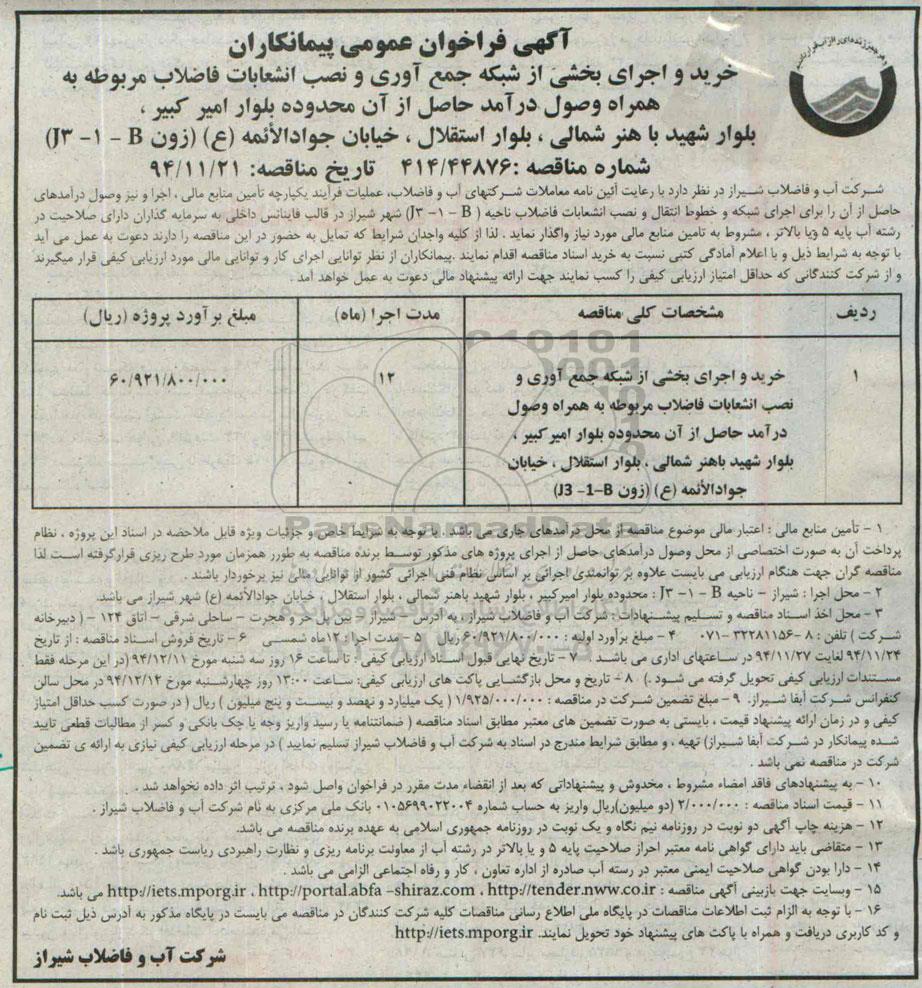 آگهی فراخوان عمومی پیمانکاران
خرید و اجرای بخشی از شبکه جمع آوری و نصب انشعابات فاضلاب مربوطه به
همراه وصول درآمد حاصل از آن محدوده بلوار امیر کبیر ،
بلوار شهید با هنر شمالی ، بلوار استقلال ، خیابان جوادالأئمه (ع) (زون J۳ -۱ - B)
شماره مناقصه :۴۱۴/۴۴۸۷۶ تاریخ مناقصه: ۹۴/۱۱/۲۱
شرکت آب و فاضلاب شیراز در نظر دارد با رعایت آئین نامه معاملات شرکتهای آب و فاضلاب، عملیات فرآیند یکپارچه تأمین منابع مالی ، اجرا و نیز وصول درآمدهای
حاصل از آن را برای اجرای شبکه و خطوط انتقال و نصب انشعابات فاضلاب ناحیه ( J۳ -۱ - B) شهر شیراز در قالب فاینانس داخلی به سرمایه گذاران دارای صلاحیت در
رشته آب پایه ۵ ویا بالاتر ، مشروط به تامین منابع مالی مورد نیاز واگذار نماید . لذا از کلیه واجدان شرایط که تمایل به حضور در این مناقصه را دارند دعوت به عمل می آید
با توجه به شرایط ذیل و با اعلام آمادگی کتبی نسبت به خرید اسناد مناقصه اقدام نمایند .پیمانکاران از نظر توانایی اجرای کار و توانایی مالی مورد ارزیابی کیفی قرار میگیرند
و از شرکت کنندگانی که حداقل امتیاز ارزیابی کیفی را کسب نمایند جهت ارائه پیشنهاد مالی دعوت به عمل خواهد آمد .
ردیف مشخصات کلی مناقصه مدت اجرا (ماه) مبلغ برآورد پروژه (ریال)
۱ خرید و اجرای بخشی از شبکه جمع آوری و ۱۲ ۶۰/۹۲۱/۸۰۰/۰۰۰
نصب انشعابات فاضلاب مربوطه به همراه وصول
درآمد حاصل از آن محدوده بلوار امیر کبیر ،
بلوار شهید باهنر شمالی ، بلوار استقلال ، خیابان
جوادالأئمه (ع) (زون J3 -1-B)
۱ - تأمین منابع مالی : اعتبار مالی موضوع مناقصه از محل درآمدهای جاری می باشد . با توجه به شرایط خاص و جزئیات ویژه قابل ملاحضه در اسناد این پروژه ، نظام
پرداخت آن به صورت اختصاصی از محل وصول درآمدهای حاصل از اجرای پروژه های مذکور توسط برنده مناقصه به طورر همزمان مورد طرح ریزی قرارگرفته است. لذا
مناقصه گران جهت هنگام ارزیابی می بایست علاوه بر توانمندی اجرائی بر اساس نظام فنی اجرائی کشور از توانایی مالی نیز برخوردار باشند .
۲ - محل اجرا : شیراز - ناحیه J۳ -۱ - B : محدوده بلوار امیرکبیر ، بلوار شهید باهنر شمالی ، بلوار استقلال ، خیابان جوادالأئمه (ع) شهر شیراز می باشد.
۳ - محل اخذ اسناد مناقصه و تسلیم پیشنهادات : شرکت آب و فاضلاب شیراز ، به آدرس - شیراز - بین پل حر و هجرت - ساحلی شرقی - اتاق ۱۲۴ - ( دبیرخانه
شرکت ) تلفن : ۸ -۳۲۲۸۱۱۵۶ -۰۷۱ ۴ - مبلغ برآورد اولیه : ۶۰/۹۲۱/۸۰۰/۰۰۰ ریال ۵ - مدت اجرا : ۱۲ماه شمسی ۶ - تاریخ فروش اسناد مناقصه : از تاریخ
۹۴/۱۱/۲۴ لغایت ۹۴/۱۱/۲۷ در ساعتهای اداری می باشد . ۷ - تاریخ نهایی قبول اسناد ارزیابی کیفی : تا ساعت ۱۶ روز سه شنبه مورخ ۹۴/۱۲/۱۱ (در این مرحله فقط
مستندات ارزیابی کیفی تحویل گرفته می شود .) ۸ - تاریخ و محل بازگشایی پاکت های ارزیابی کیفی: ساعت ۱۳:۰۰ روز چهارشنبه مورخ ۹۴/۱۲/۱۴ در محل سالن
کنفرانس شرکت آبفا شیراز. ۹ - مبلغ تضمین شرکت در مناقصه : ۱/۹۲۵/۰۰۰/۰۰۰ ( یک میلیارد و نهصد و بیست و پنج میلیون ) ریال ( در صورت کسب حداقل امتیاز
کیفی و در زمان ارائه پیشنهاد قیمت ، بایستی به صورت تضمین های معتبر مطابق اسناد مناقصه ( ضمانتنامه یا رسید واریز وجه یا چک بانکی و کسر از مطالبات قطعی تایید
شده پیمانکار در شرکت آبفا شیراز) تهیه ، و مطابق شرایط مندرج در اسناد به شرکت آب و فاضلاب شیراز تسلیم نمایید ) در مرحله ارزیابی کیفی نیازی به ارائه ی تضمین
شرکت در مناقصه نمی باشد .
۱۰ - به پیشنهادهای فاقد امضاء مشروط ، مخدوش و پیشنهاداتی که بعد از انقضاء مدت مقرر در فراخوان واصل شود ، ترتیب اثر داده نخواهد شد .
۱۱ - قیمت اسناد مناقصه : ۲/۰۰۰/۰۰۰ (دو میلیون)ریال واریز به حساب شماره ۰۱۰۵۶۹۹۰۲۲۰۰۴ بانک ملی مرکزی به نام شرکت آب و فاضلاب شیراز .
۱۲ - هزینه چاپ آگهی دو نوبت در روزنامه نیم نگاه و یک نوبت در روزنامه جمهوری اسلامی به عهده برنده مناقصه می باشد.
۱۳ - متقاضی باید دارای گواهی نامه معتبر احراز صلاحیت پایه ۵ و یا بالاتر در رشته آب از معاونت برنامه ریزی و نظارت راهبردی ریاست جمهوری باشد .
۱۴ - دارا بودن گواهی صلاحیت ایمنی معتبر در رسته آب صادره از اداره تعاون ، کار و رفاه اجتماعی الزامی می باشد .
۱۵ - وبسایت جهت بازبینی آگهی مناقصه : http://iets.mporg.ir ، http://portal.abfa -shiraz.com ، http://tender.nww.co.ir می باشد.
۱۶ - با توجه به الزام ثبت اطلاعات مناقصات در پایگاه ملی اطلاع رسانی مناقصات کلیه شرکت کنندگان در مناقصه می بایست در پایگاه مذکور به آدرس ذیل ثبت نام
و کد کاربری دریافت و همراه با پاکت های پیشنهاد خود تحویل نمایند. http://iets.mporg.ir
شرکت آب و فاضلاب شیراز
ParsNamadData